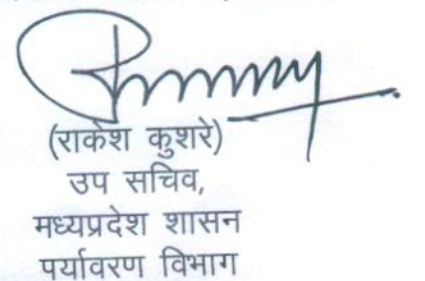 (राकेश कुशरे)
उप सचिव,
मध्यप्रदेश शासन
पर्यावरण विभाग